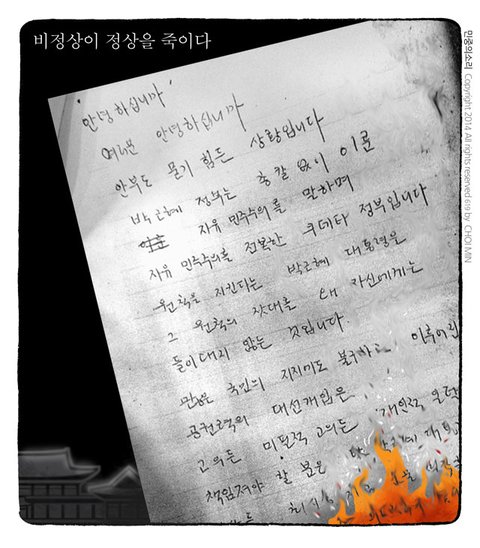 비정상이 정상을 죽이다
안녕하십니까
여러분 안녕하십니까
안부도 묻기 힘든 상황입니다
박근혜 정부는 총칼 없이 이룬
자유 민주주의를 말하며
자유 민주주의를 전복한 쿠데타 정부입니다
원칙을 지킨다는 박근혜 대통령은
그 원칙의 잣대를 왜 자신에게는
들이대지 않는 것입니까
많은 국민의 지지에도 불구하고
공권력의 대선개입은
고의든 미필적 고의든 개인적 일탈
책임져야 할 분은
민중의소리 Copyright 2014 All rights reserved 619 by CHOI MIN